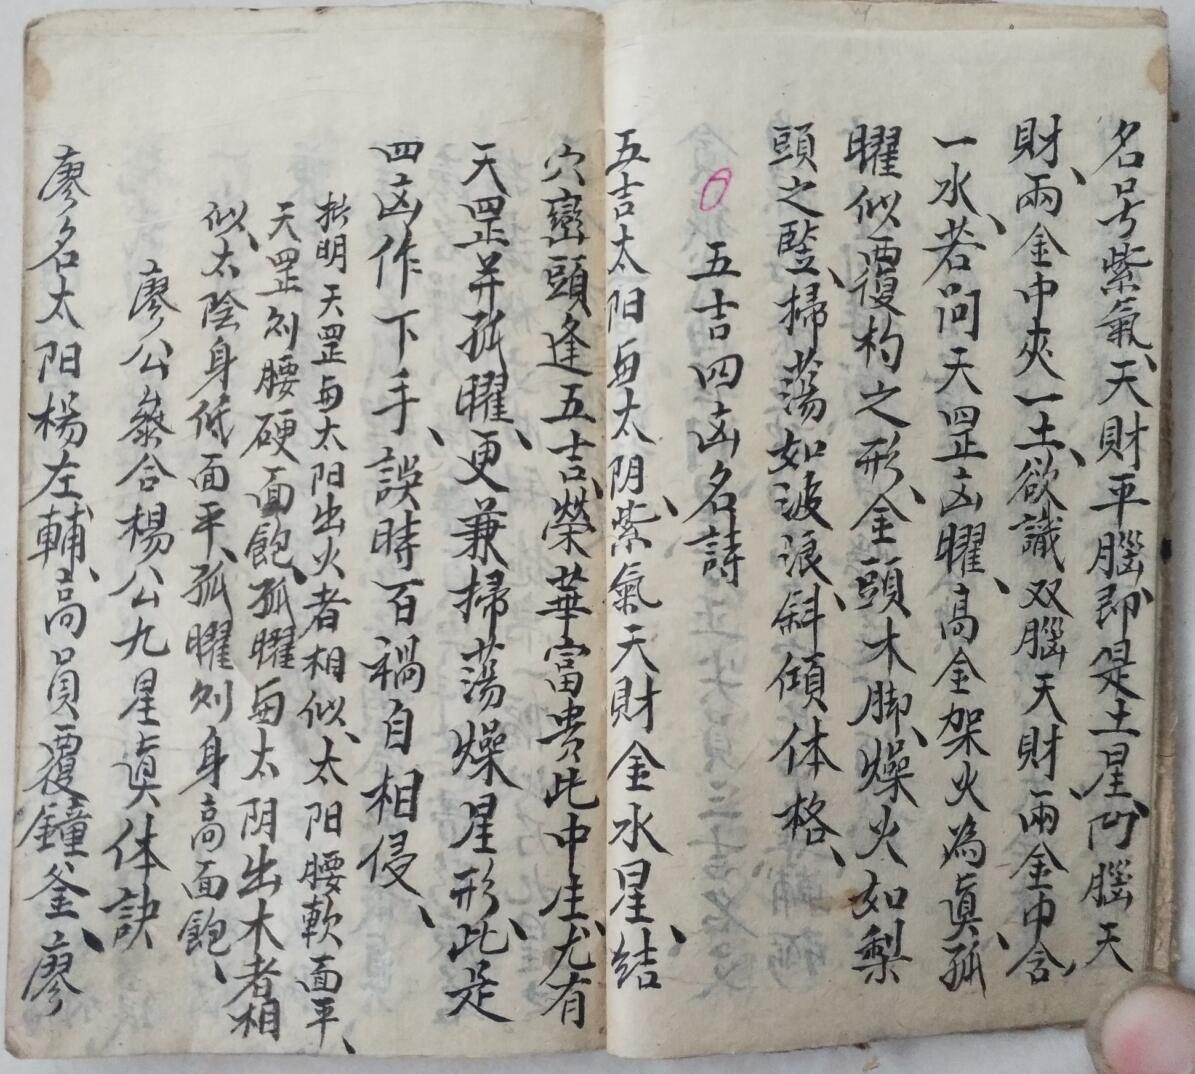 名号紫氣、天財平腦即是土星、凹腦天
財、兩金中夾一土、欲識双腦天財、兩金中含
一水、若问天罡凶曜、高金架火為真、孤
曜似覆杓之形、金頭木脚、燥火如犁
頭之竪、掃蕩如波浪、斜傾体格、
五吉四凶名詩
五吉太阳与太阴、紫氣天財金水星、結
穴巒頭逢五吉、榮華富贵此中生、尤有
天罡并孤曜、更兼掃蕩燥星形、此是
四凶作下手、誤時百禍自相侵、
批明天罡与太阳出火者相似、太阳腰軟面平、
天罡刿腰硬面飽、孤曜与太阴出木者相
似、太陰身低面平、孤曜刿身高面飽、
廖公叅合楊公九星真体訣
廖名太阳楊左輔、高員覆鐘釜、廖